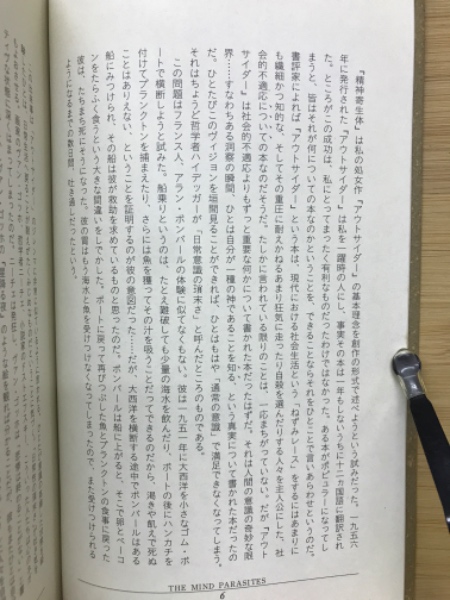 『精神寄生体』は私の処女作『アウトサイダー』の基本理念を創作の形式で述べようという試みだった。一九五六
年に発行された『アウトサイダー』は私を一躍時の人にし、事実その本は一年もしないうちに十二ヵ国語に翻訳され
た。ところがこの成功は、私にとってまったく有利なものだったわけではなかった。ある本がポピュラーになってし
まうと、皆はそれが何についての本なのかということを、できることならそれをひとことで言いあらわせというのだ。
書評家によれば『アウトサイダー』という本は、現代における社会生活という〝ねずみレース〟をするにはあまりに
も繊細かつ知的な、そしてその重圧に耐えかねるあまり狂気に走ったり自殺を選んだりする人々を主人公にした、社
会的不適応についての本なのだそうだ。たしかに言われている限りのことは、一応まちがっていない。だが『アウト
サイダー』は社会的不適応よりもずっと重要な何かについて書かれた本だったはずだ。それは人間の意識の奇妙な限
界……すなわちある洞察の瞬間、ひとは自分が一種の神であることを知る、という真実について書かれた本だったの
だ。ひとたびこのヴィジョンを垣間見ることができれば、ひとはもはや「通常の意識」で満足できなくなってしまう。
それはちょうど哲学者ハイデッガーが「日常意識の瑣末さ」と呼んだところのものである。
この問題はフランス人、アラン・ボンバールの体験に似てなくもない。彼は一九五一年に大西洋を小さなゴム・ボ
ートで横断しようと試みた。船乗りというのは、たとえ難破しても少量の海水を飲んだり、ボートの後にハンカチを
付けてプランクトンを捕まえたり、さらには魚を獲てその汁を吸うことだってできるのだから、渇きや飢えで死ぬ
ことはありえない、ということを証明するのが彼の意図だった……だが、大西洋を横断する途中でボンバールはある
船にみつけられ、その船は彼が救助を求めているものと思ったのだ。ボンバールは船に上がると、そこで卵とベーコ
ンをたらふく食うという大きな間違いをしでかした。ボートに戻って再びつぶした魚とプランクトンの食事に戻った
彼は、たちまち死にそうになった。彼の胃はもう海水と魚を受けつけなくなってしまったので、また受けつけられる
ようになるまでの数日間、吐き通しだったという。
THE MIND PARASITES
6